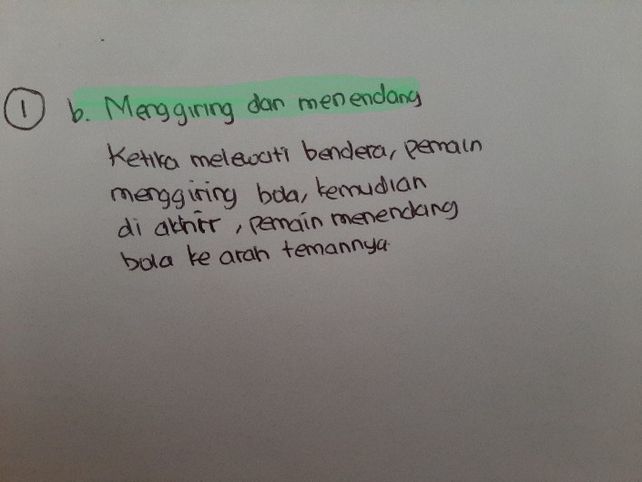 1 b. Menggiring dan menendang
Ketika melewati bendera, pemain
menggiring bola, kemudian
di akhir, pemain menendang
bola ke arah temannya